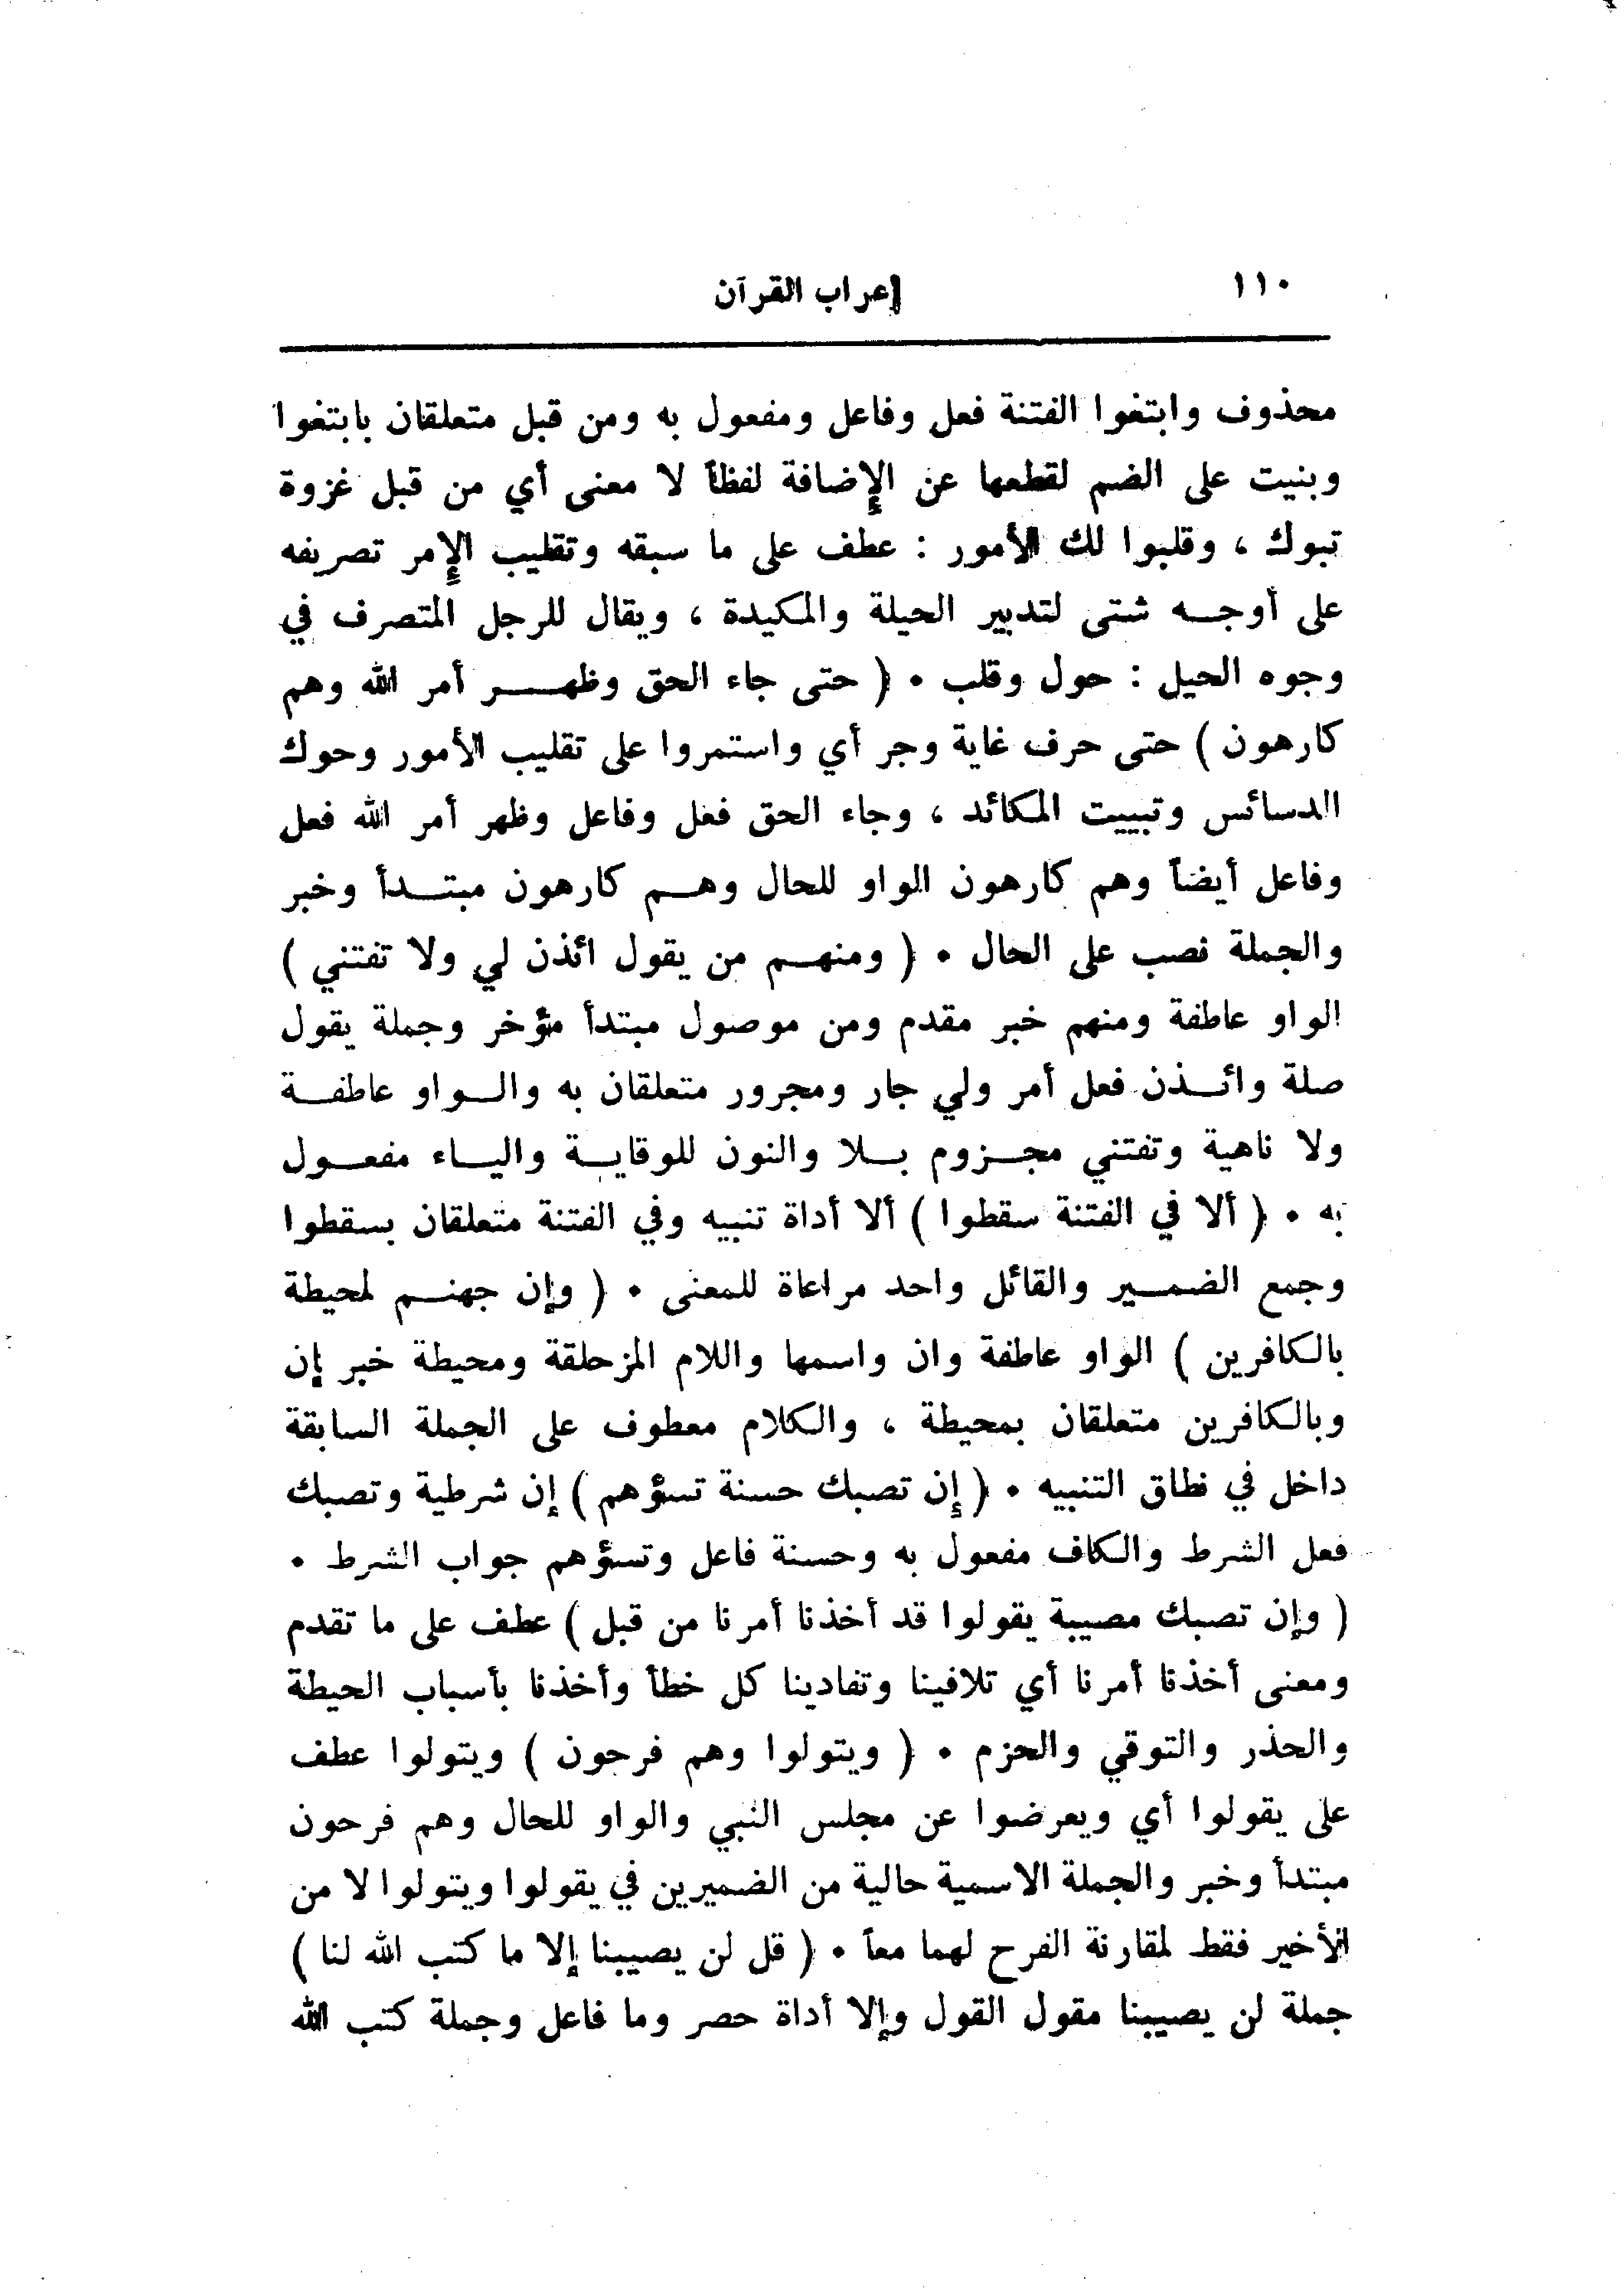 ١١٠
إعراب القرآن
محذوف وابتغوا الفتنة فعل وفاعل ومفعول به ومن قبل متعلقان بابتغوا
وبنيت على الضم لقطعها عن الإضافة لفظاً لا معنى أي من قبل غزوة
تبوك ، وقلبوا لك الأمور : عطف على ما سبقه وتقليب الإمر تصريفه
على أوجه شتى لتدبير الحيلة والمكيدة ، ويقال للرجل المتصرف في
وجوه الحيل : حول وقلب . ( حتى جاء الحق وظهر أمر الله وهم
كارهون ) حتى حرف غاية وجر أي واستمروا على تقليب الأمور وحوك
الدسائس وتبييت المكائد ، وجاء الحق فعل وفاعل وظهر أمر الله فعل
وفاعل أيضاً وهم كارهون الواو للحال وهم كارهون مبتدأ وخبر
والجملة نصب على الحال . ( ومنهم من يقول ائذن لي ولا تفتني )
الواو عاطفة ومنهم خبر مقدم ومن موصول مبتدأ مؤخر وجملة يقول
صلة وائذن فعل أمر ولي جار ومجرور متعلقان به والواو عاطفة
ولا ناهية وتفتني مجزوم بلا والنون للوقاية والياء مفعول
به . ( ألا في الفتنة سقطوا ) ألا أداة تنبيه وفي الفتنة متعلقان بسقطوا
وجمع الضمير والقائل واحد مراعاة للمعنى . ( وإن جهنم لمحيطة
بالكافرين ) الواو عاطفة وان واسمها واللام المزحلقة ومحيطة خبر إن
وبالكافرين متعلقان بمحيطة ، والكلام معطوف على الجملة السابقة
داخل في نطاق التنبيه . ( إن تصبك حسنة تسؤهم ) إن شرطية وتصبك
فعل الشرط والكاف مفعول به وحسنة فاعل وتسؤهم جواب الشرط .
( وإن تصبك مصيبة يقولوا قد أخذنا أمرنا من قبل ) عطف على ما تقدم
ومعنى أخذنا أمرنا أي تلافينا وتفادينا كل خطأ وأخذنا بأسباب الحيطة
والحذر والتوقي والحزم . ( ويتولوا وهم فرحون ) ويتولوا عطف
على يقولوا أي ويعرضوا عن مجلس النبي والواو للحال وهم فرحون
مبتدأ وخبر والجملة الاسمية حالية من الضميرين في يقولوا ويتولوا لا من
الأخير فقط لمقارنة الفرح لهما معاً . ( قل لن يصيبنا إلا ما كتب الله لنا )
جملة لن يصيبنا مقول القول وإلا أداة حصر وما فاعل وجملة كتب الله